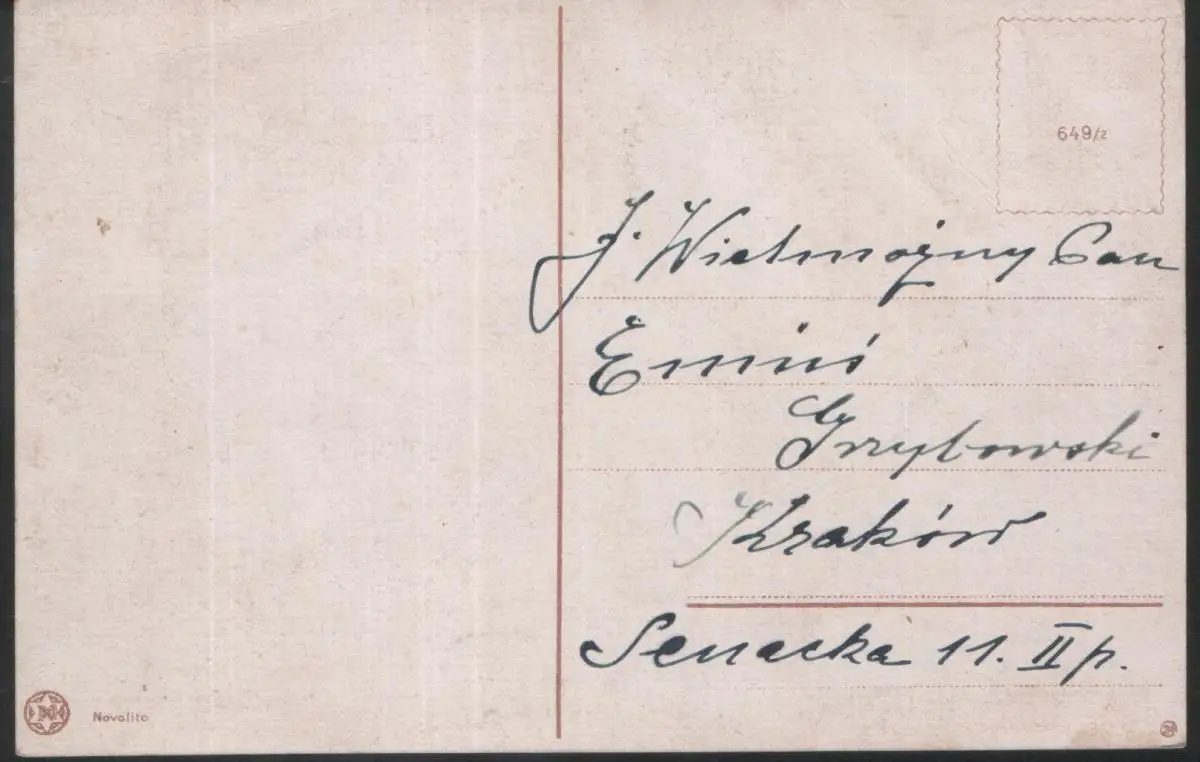 649/2
J. Wielmożny Pan
Emiś
Grzybowski
Kraków
Senacka 11. II p.
Novolito